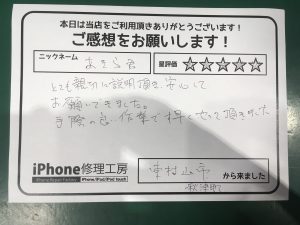 本日は当店をご利用頂きありがとうございます！
ご感想をお願いします！
ニックネーム あきら君 星評価 ☆☆☆☆☆
とても親切に説明頂き、安心して
お願いできました。
手際の良い作業で早くやって頂きました
iPhone修理工房
iPhone Repair Factory iPhone/iPad/iPod touch
東村山市 から来ました
秋津町